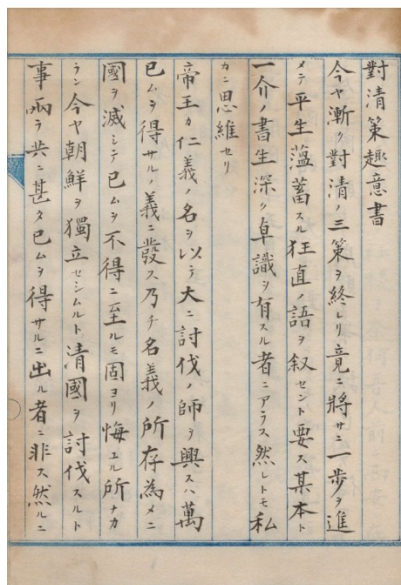 對清策趣意書
今ヤ漸ク對清ノ三策ヲ終レリ竟ニ將サニ一歩ヲ進
メテ平生薀蓄スル狂直ノ語ヲ叙セント要ス某本ト
一介ノ書生深ク卓識ヲ有スル者ニアラス然レトモ私
カニ思維セリ
帝王カ仁義ノ名ヲ以テ大ニ討伐ノ師ヲ興スハ萬
已ムヲ得サルノ義ニ發ス乃チ名義ノ所存為メニ
國ヲ滅シテ已ムヲ不得ニ至ルモ固ヨリ悔エル所ナカ
ラン今ヤ朝鮮ヲ獨立セシムルト清國ヲ討伐スルト
事兩ラ共ニ甚タ已ムヲ得サルニ出ル者ニ非ス然ルニ